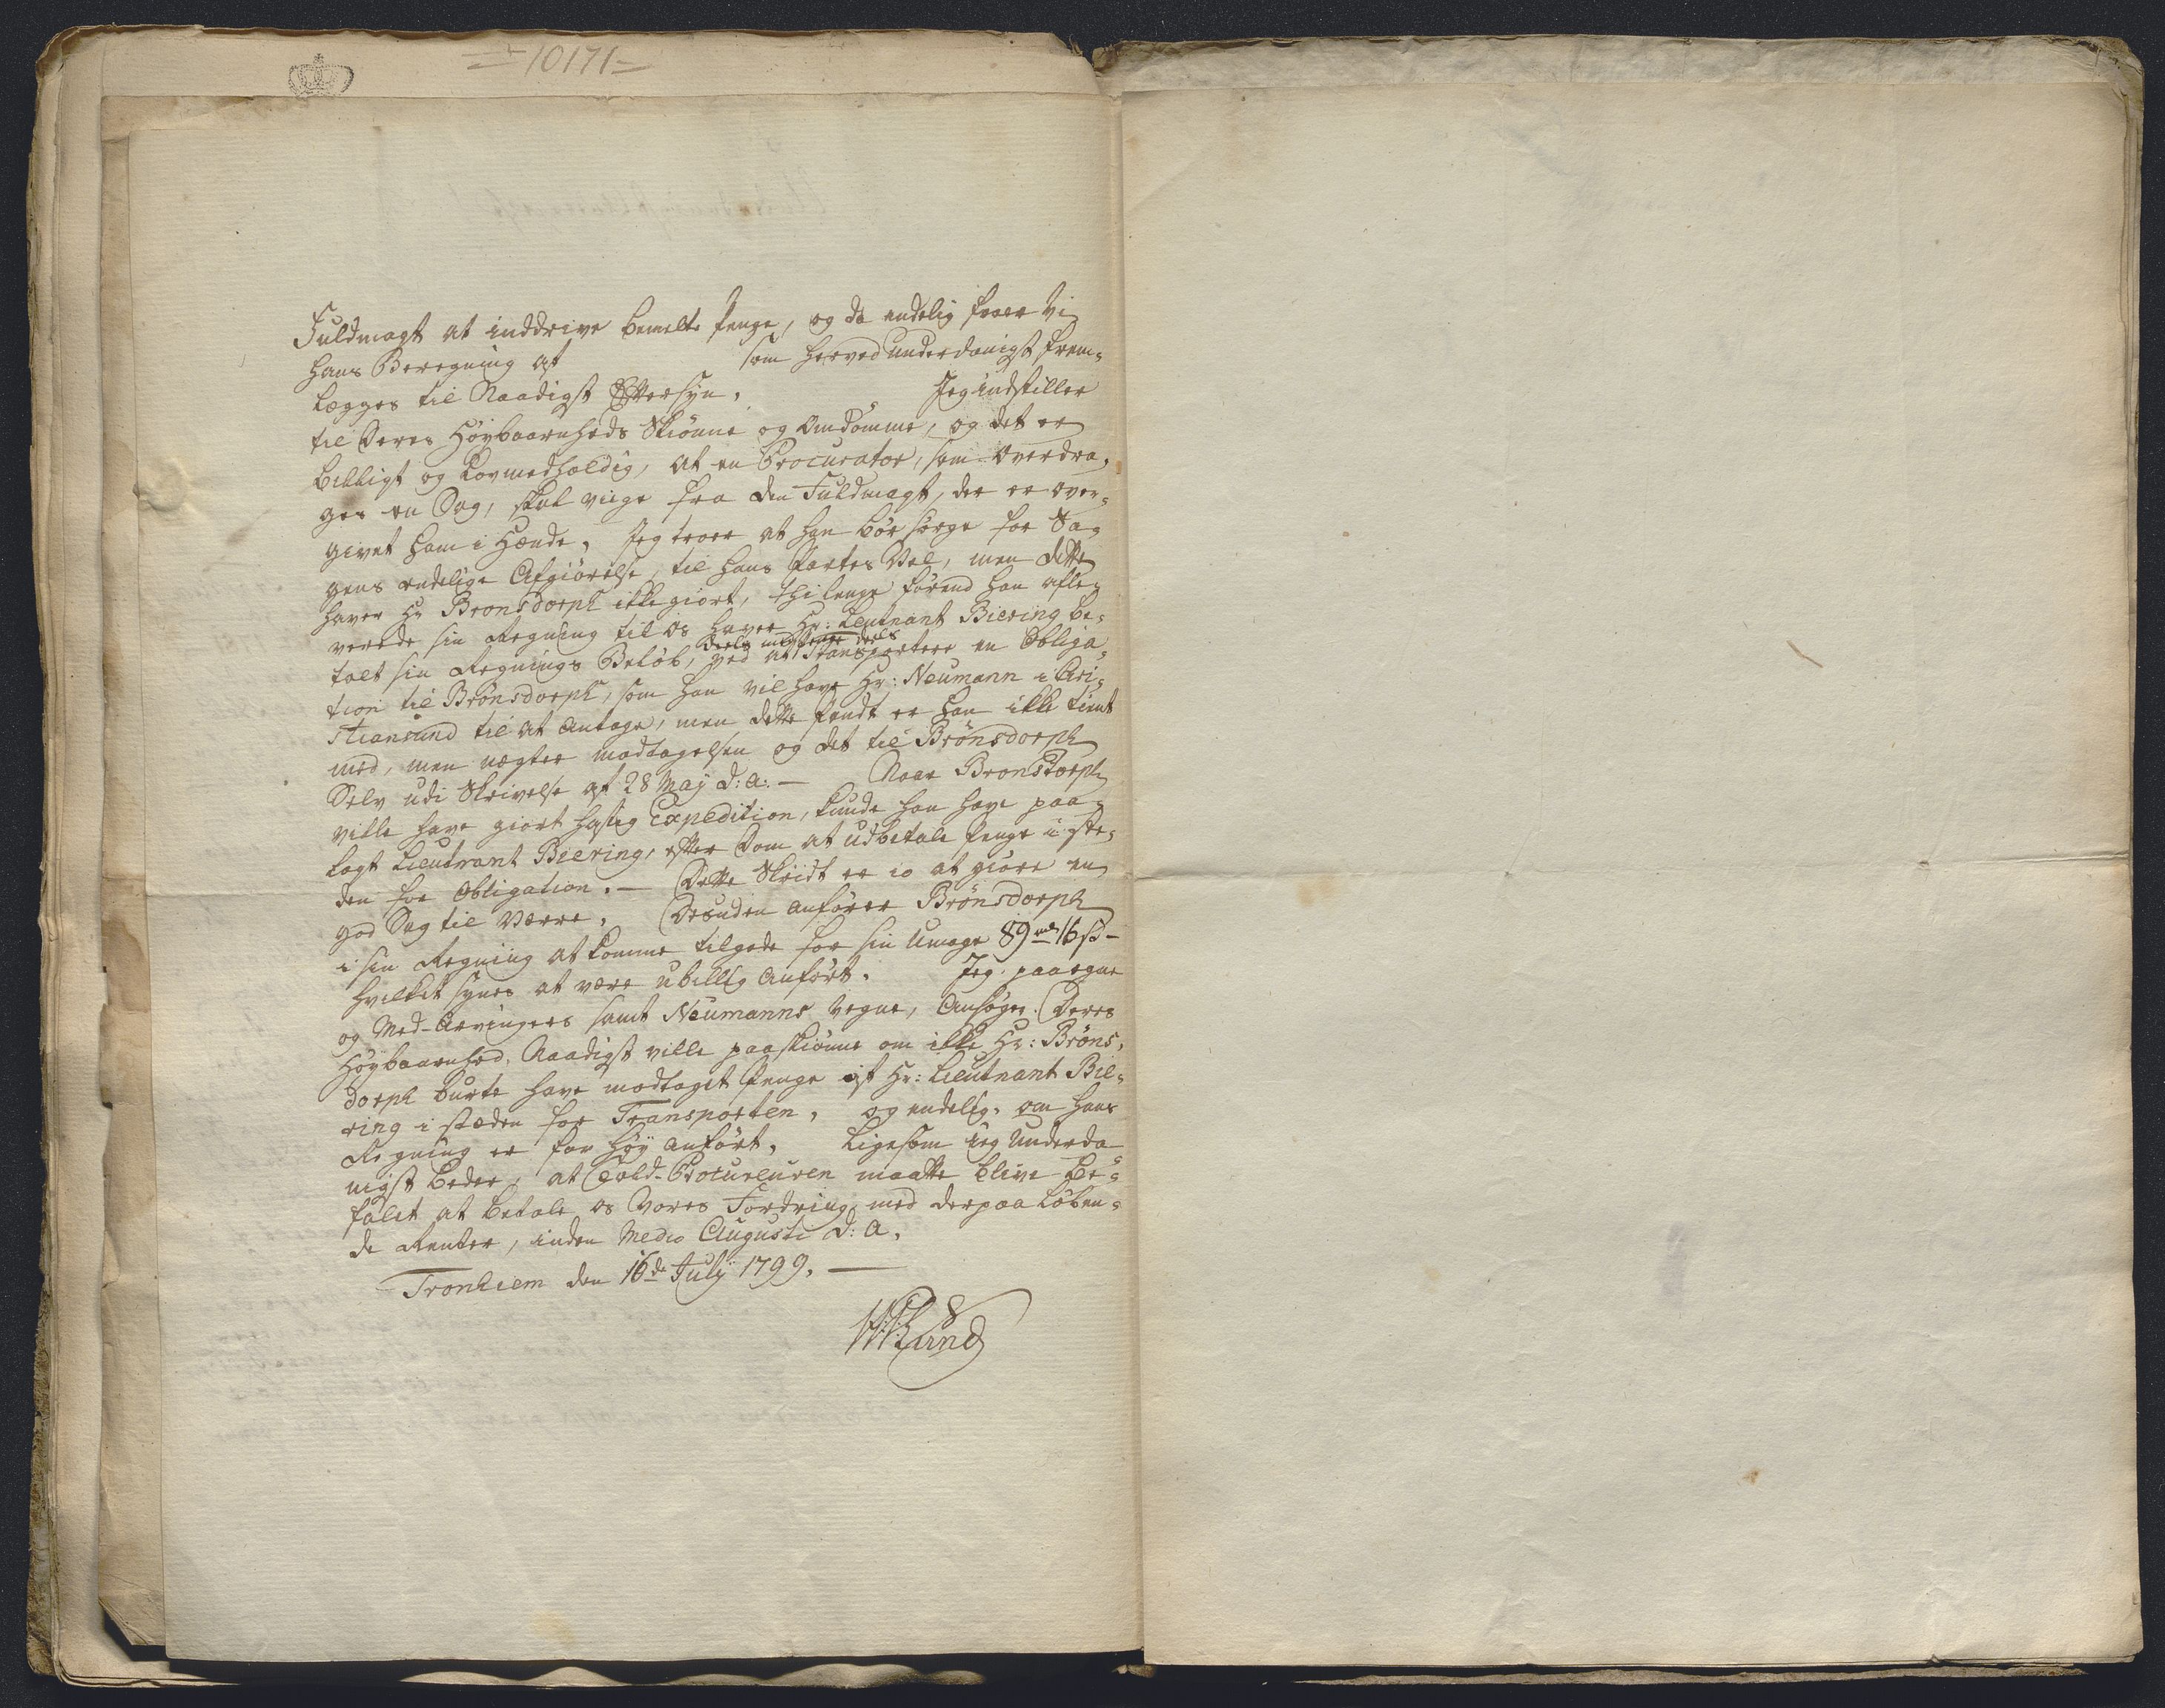 10171
Fuldmagt at inddrive bemelte Penge, og da endelig faaer Vi
hans Beregning af som herved underdanigst frem-
legges til Naadigst Eftersyn. Jeg indstiller
til Deres Høybaarnheds Skiønne og Omdømme, og det er
billigt og Lovmedholdig, at en Procurator, som overdra-
ges en Sag, skal viige fra den Fuldmagt, der er over-
givet ham i Hænde, Jeg troer at han bør sørge for Sa-
gens endelige Afgiørelse, til hans Partes Vel, men dette
haver Hr Bronsdorph ikke giort, thi lenge førend han afle-
verede sin Regning til os haver Hr: Leutnant Biering be-
talt sin Regnings Beløb, deels med Penge deels ved at Transportere en Obliga-
tion til Brønsdorph, som han vil have Hr: Neumann i Cri-
stiansund til at antage, men dette sendt er han ikke tient
med, men nægter modtagelsen og det til Brønsdorph
Selv udi Skrivelse af 28 Maj d: a: – Naar Bronsdorph
ville have giort hastig Expedition, kunde han have paa-
lagt Lieutnant Biering, efter Dom at udbetale Penge i ste-
den for Obligation. – Dette Skridt er io at giøre en
god Sag til Værre. Desuden anfører Brønsdorph
i sin Regning at komme tilgode for sin Umage 89 16 s –
hvilket synes at være ubillig anført. Jeg paa egne
og Med-Arvingers samt Neumanns Vegne, ansøger Deres
Høybaarnhed, Naadigst ville paaskiønne om ikke Hr: Brøns-
dorph burte have modtaget Penge af Hr: Lieutnant Bie-
ring i stæden for Transporten, og endelig, om hans
Regning er for høy anført, Ligesom jeg Underda-
nigst beder, at Told-Procureuren maatte blive be-
falet at betale os Vores Fordring med derpaa løben-
de Renter, inden Medio Augusti d: a.
Tronhiem den 16de July 1799. –
Lund